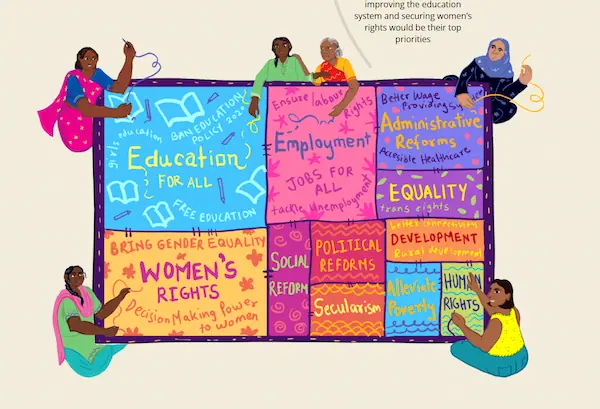 improving the education
system and securing women's
rights would be their top
priorities
education
BAN EDUCATION
POLICY
Education
FOR ALL
FREE EDUCATION
Ensure labour
Rights
Employment
JOBS FOR
ALL
tackle Unemployment
Better Wage
Administrative
Reforms
Accesible Healthcare
EQUALITY
trans rights
BRING GENDER EQUALITY
WOMEN'S
RIGHTS
Decision Making Power
to Women
SOCIAL
REFORM
POLITICAL
REFORMS
Secularism
better connectivity
DEVELOPMENT
Rural development
Alleviate
Poverty
HUMAN
RIGHTS